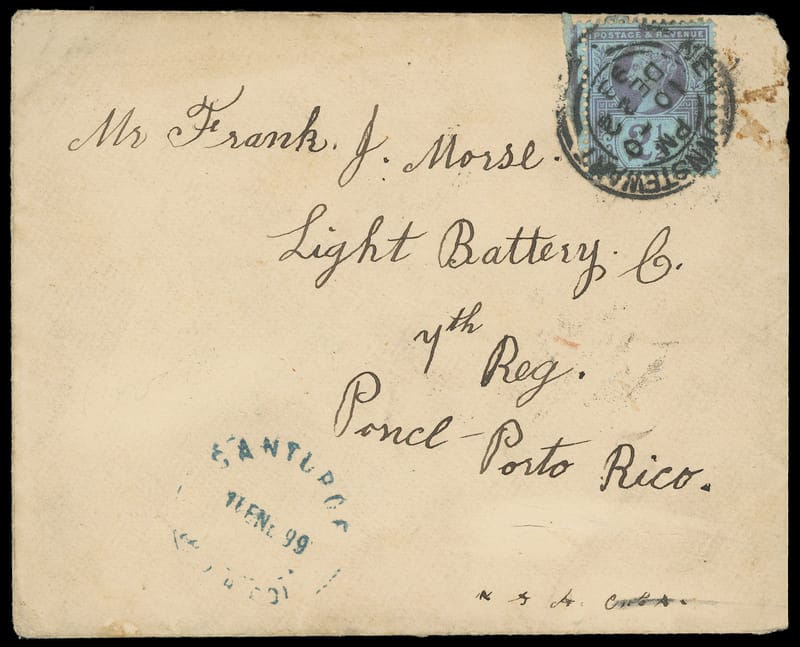 POSTAGE & REVENUE
NEWTOWNSTEWART
PM
10
DE
Mr Frank. J. Morse.
Light Battery. C.
7th Reg.
Poncl - Porto Rico.
SANTURCE
11 ENE 99